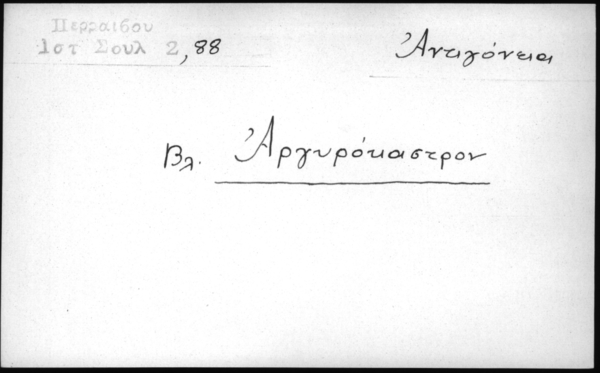 Περραιβου
Ιστ Σουλ 2, 88
Ἀντιγόνεια
Βλ. Ἀργυρόκαστρον